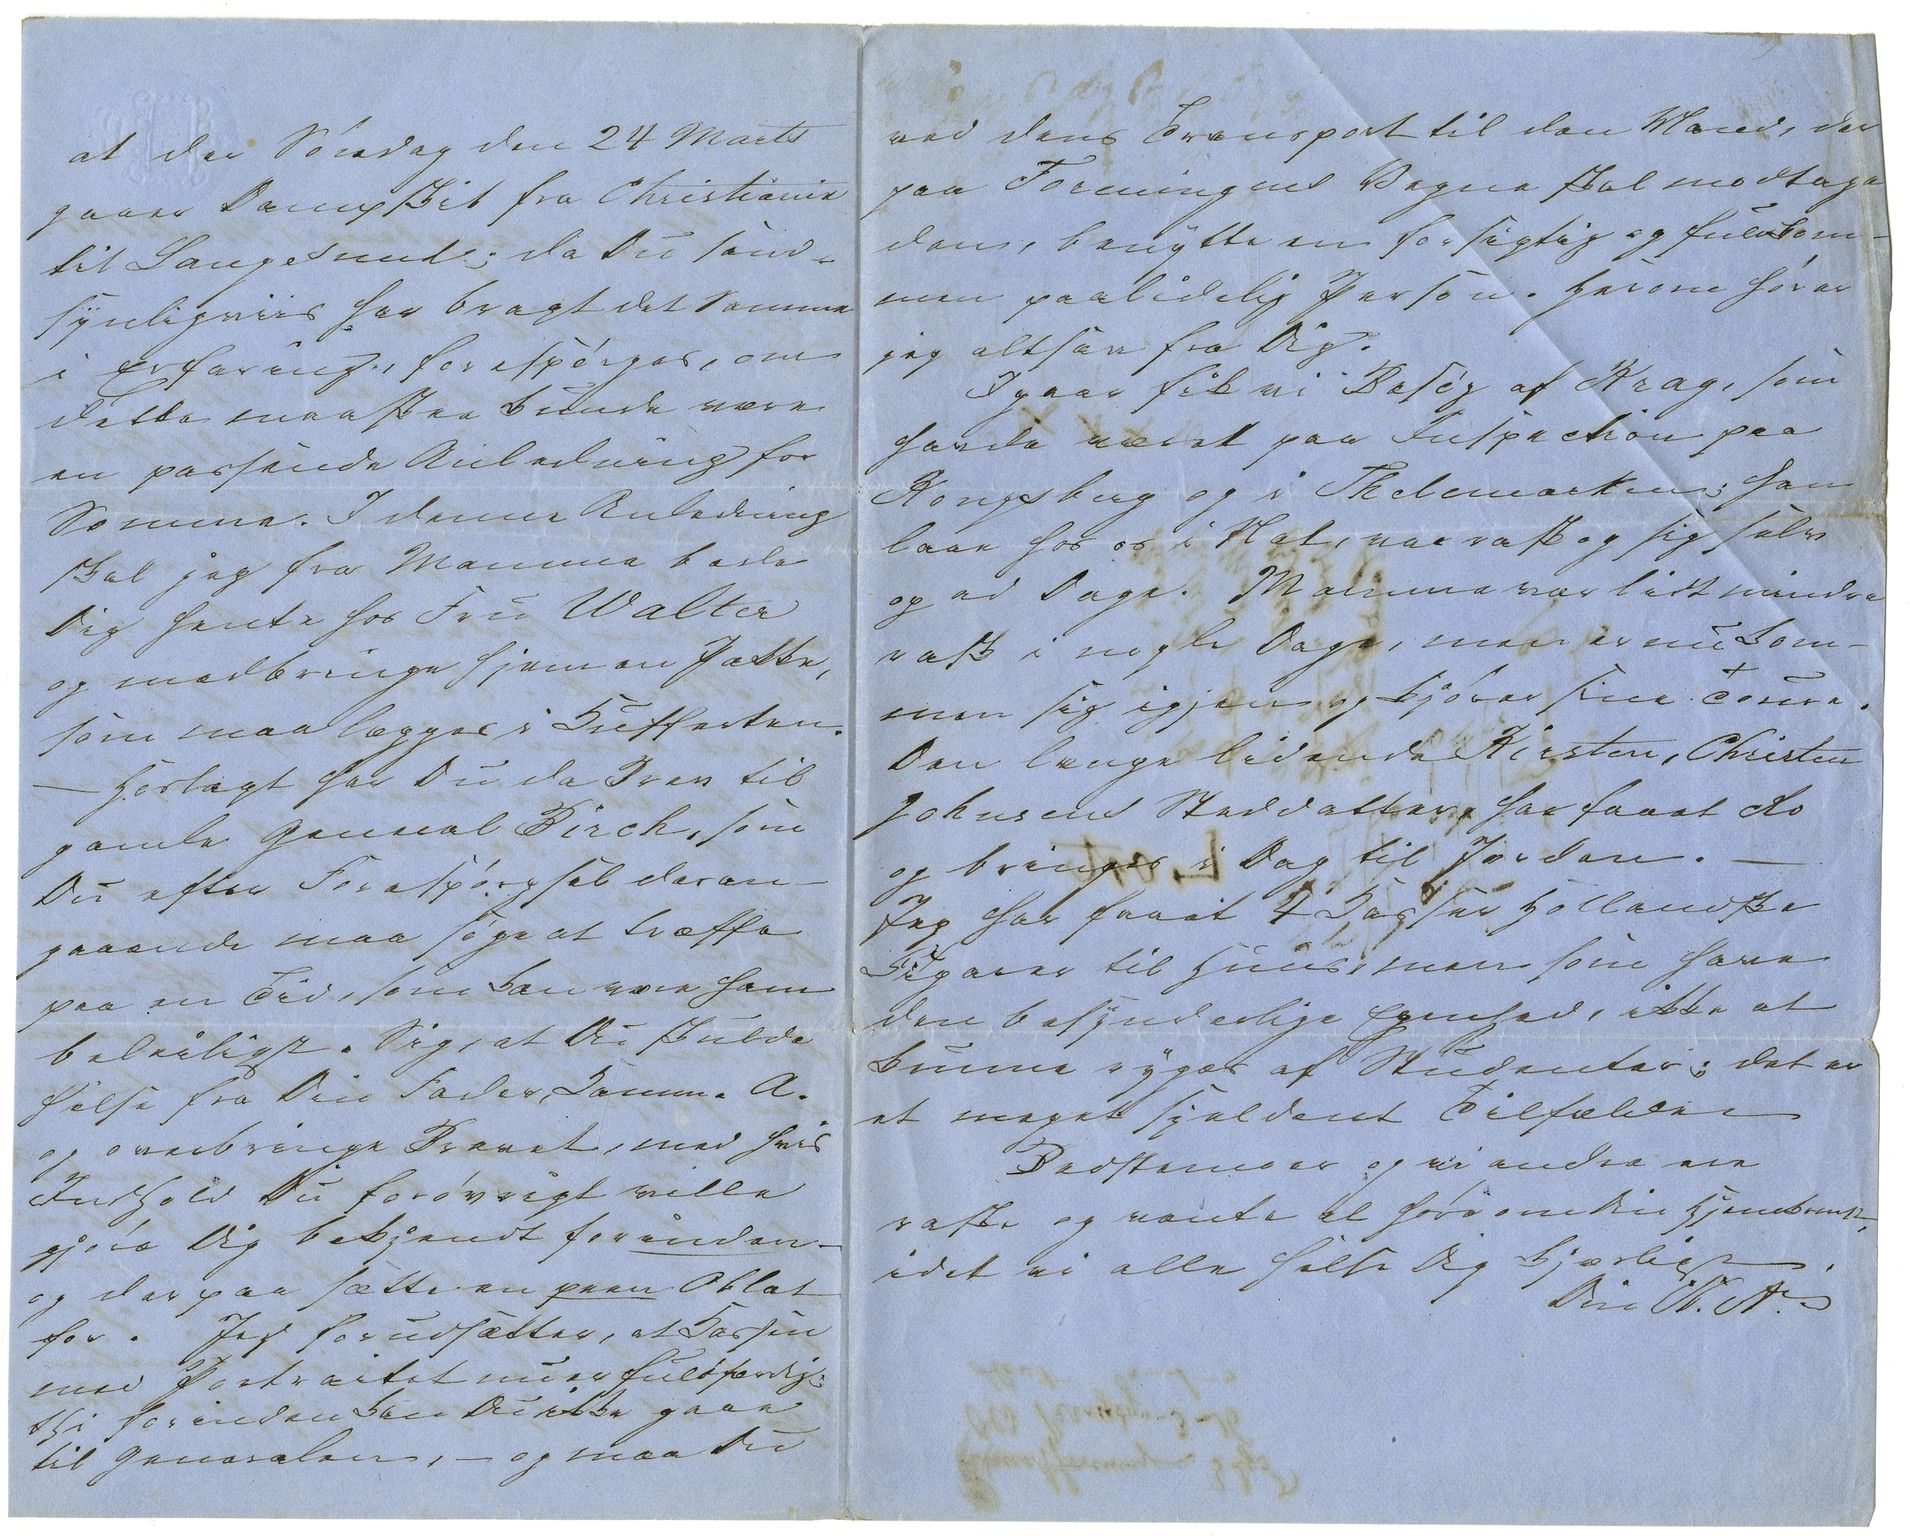 at der Söndag den 24 Marts
gaaer Dampskib fra Christiania
til Langesund; da Du sand-
synligviis har bragt det Samme
i Erfaring, forespörges, om
dette maaskee kunde være
en passende Anledning for
Samme. I denne Anledning
skal jeg fra Mamma bede
Dig hente hos Fru Walter
og medbringe hjem en Jakke,
som maa lægges i Kufferten.
— Hoslagt har Du da Brev til
gamle General Birch, som
Du efter Forespörgsel deran-
gaaende maa söge at træffe
paa en Tid, som kan være ham
beleiligst. Sig, at Du skulde
hilse fra Din Fader, Kamm. A.
og overbringe Brevet, med hvis
Indhold Du forövrigt ville
gjöre Dig bekjendt forinden
og der paa sætte en pæn Oblat
for. Jeg forudsætter, at Kassen
med Portraitet nu er fuldfærdig;
thi forinden kan Du ikke gaae
til Generalen, — og maa Du
ved dens Transport til den Mand, der
paa Foreningens Vegne skal modtage
den, benytte en forsigtig og fuldkom-
men paalidelig Person. Herom hörer
jeg altsaa fra Dig.
Igaar fik vi Besög af Krag, som
havde været paa Inspection paa
Kongsberg og i Thelemarken; han
laae hos os i Nat, var rask og sig selv
op ad Dage. Mamma var lidt mindre
rask i nogle Dage, men er nu kom-
men sig igjen og kjörer sine Toure.
Den længe lidende Kirsten, Christen
Johnsens Steddatter, har faaet Ro
og bringes i Dag til Jorden. —
Jeg har faaet 4 Kasser Hollandske
Cigarer til Huus, men som have
den besynderlige Egenhed, ikke at
kunne ryges af Studenter; det er
et meget sjeldent Tilfælde.
Bedstemoer og vi andre ere
raske og vente at höre om Din Hjemkomst,
idet vi alle hilse Dig kjærligst.
Din N. A.